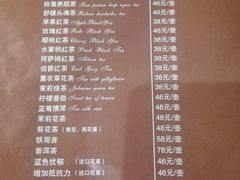 排毒养颜茶 46元/壶
舒缓头痛茶 46元/壶
苹果红茶 Apple Black Tea 38元/壶
玫瑰红茶 38元/壶
樱桃红茶 Cherry Black Tea 38元/壶
水蜜桃红茶 Peach Black Tea 38元/壶
阿萨姆红茶 38元/壶
伯爵红茶 Earl Grey Tea 38元/壶
薰衣草花茶 38元/壶
茉莉绿茶 38元/壶
柠檬香甜 46元/壶
蓝莓情深 Tea with 46元/壶
茉莉花茶 48元/壶
菊花茶 48元/壶
铁观音 58元/壶
普洱茶 78元/壶
蓝色忧郁 (进口花草) 48元/壶
增加抵抗力 (进口花草) 46元/壶